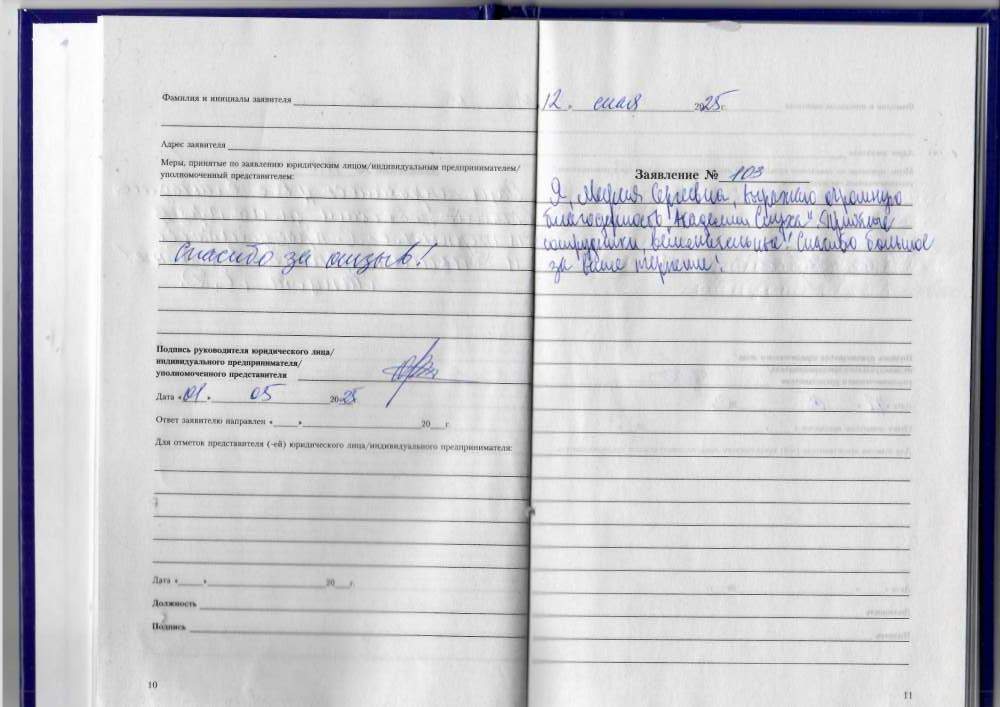 Фамилия и инициалы заявителя
Адрес заявителя
Меры, принятые по заявлению юридическим лицом/индивидуальным предпринимателем/
уполномоченный представителем:
Спасибо за отзыв!
Подпись руководителя юридического лица/
индивидуального предпринимателя/
уполномоченного представителя
Дата «01» 05 2025г.
Ответ заявителю направлен «____»____20__г.
Для отметок представителя (-ей) юридического лица/индивидуального предпринимателя:
Дата «____»____20__г.
Должность
Подпись
10
12. мая 2025г.
Заявление № 103
Я, Мария Сергеевна, выражаю огромную
благодарность "Академии Слуха".
сотрудники великолепные! Спасибо большое
за Ваше терпение!
11